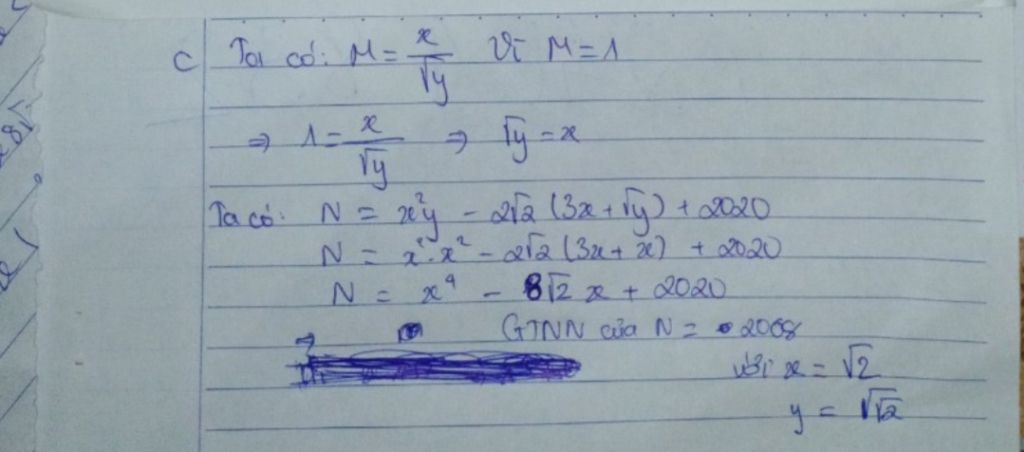 c Ta có: M = x/√y Vì M = 1
⇒ 1 = x/√y ⇒ √y = x
Ta có: N = x²y - 2√2 (3x + √y) + 2020
N = x².x² - 2√2 (3x + x) + 2020
N = x⁴ - 8√2 x + 2020
GTNN của N = 2008
với x = √2
y = √√2